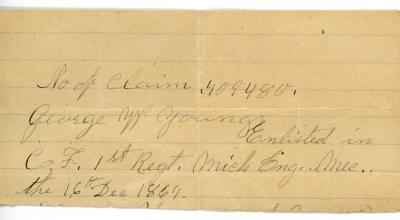 No of Claim 409480.
George W Young
Enlisted in
Co. F. 1st Regt. Mich Eng. Mec..
the 16th Dec 1864.